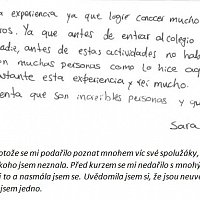 a experiencia ya que logré conocer mucho
ros. Ya que antes de entrar al colegio
adie, antes de estas actividades no hab
on muchas personas como lo hice aq
stante esta experiencia y reí mucho.
enta que son increíbles personas y qu
Sara
otože se mi podařilo poznat mnohem víc své spolužáky,
koho jsem neznala. Před kurzem se mi nedařilo s mnohý
i to a nasmála jsem se. Uvědomila jsem si, že jsou neuvě
jsem jedno.